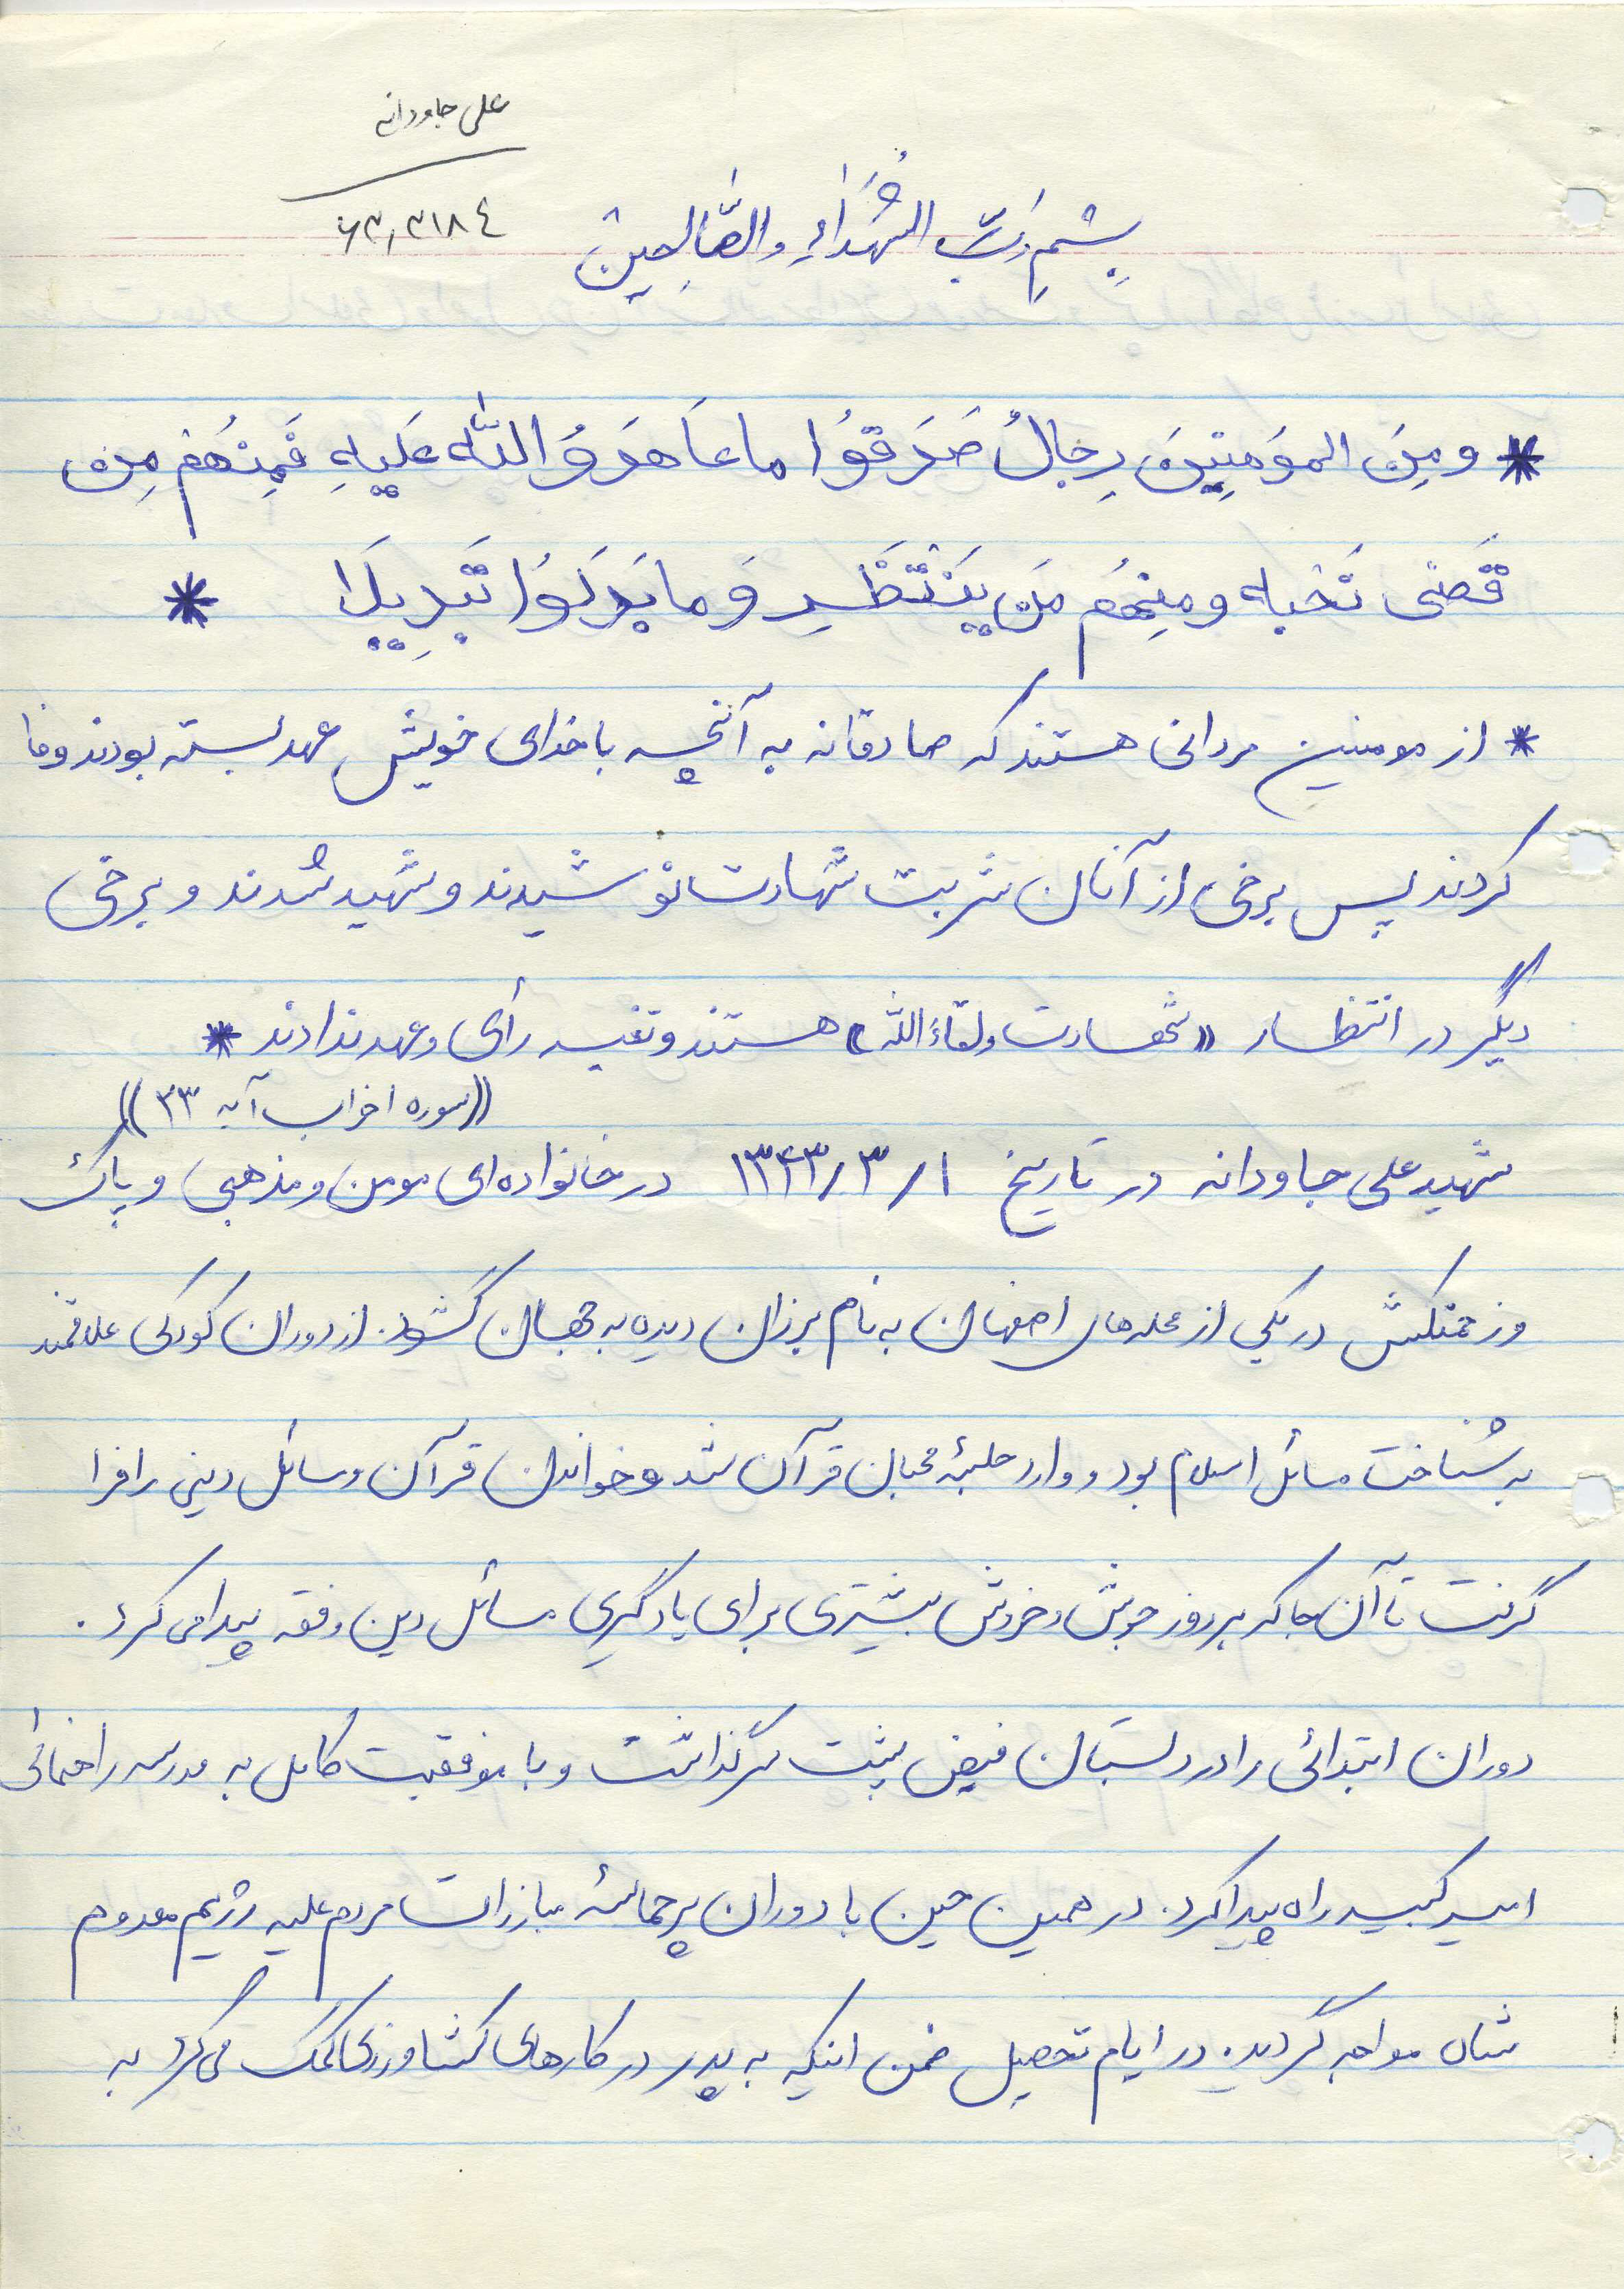 علی جاودانه
بِسْمِ رَبِّ الشُّهَدٰاءِ والصّٰالِحین
* ومِنَ المومِنِینَ رِجالٌ صَدَقوُا ما عاهَدَوُ اللّٰه عَلَیهِ فَمِنهُم مِن
قَضی نَحْبه ومِنهُم مَن یَنْتَظِر وَ ما بَدَلَوُا تَبدِیلاَ *
* از مومنین مردانی هستند که صادقانه به آنچه با خدای خویش عهد بسته بودند وفا
کردند پس برخی از آنان شربت شهادت نوشیدند و شهید شدند و برخی
دیگر در انتظار «شهادت ولقاءالله» هستند و تغییر رأی و عهد ندادند *
((سوره احزاب آیه ٢٣))
شهید علی جاودانه در تاریخ ١/٣/١٣٤٣ در خانواده‌ای مومن و مذهبی و پاک
وزحمتکش در یکی از محله‌های اصفهان به نام برزان دیده به جهان گشود. از دوران کودکی علاقمند
به شناخت مسائل اسلام بود و وارد جلسهٔ محبان قرآن شد و خواندن قرآن و مسائل دینی را فرا
گرفت تا آن جا که هر روز جوش و خروش بیشتری برای یادگیری مسائل دین و فقه پیدا می کرد.
دوران ابتدائی را در دبستان فیض پشت سر گذاشت و با موفقیت کامل به مدرسه راهنمائی
امیرکبیر راه پیدا کرد. در همین حین با دوران پرحماسهٔ مبارزات مردم علیه رژیم معدوم
شاه مواجه گردید. در ایام تحصیل ضمن اینکه به پدر در کارهای کشاورزی کمک می کرد به